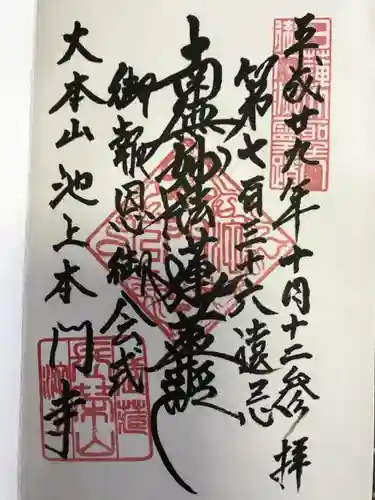 平成廿九年十月十二参拝
第七百三十六遠忌
南無妙法蓮華経
御報恩御会式
大本山池上本門寺